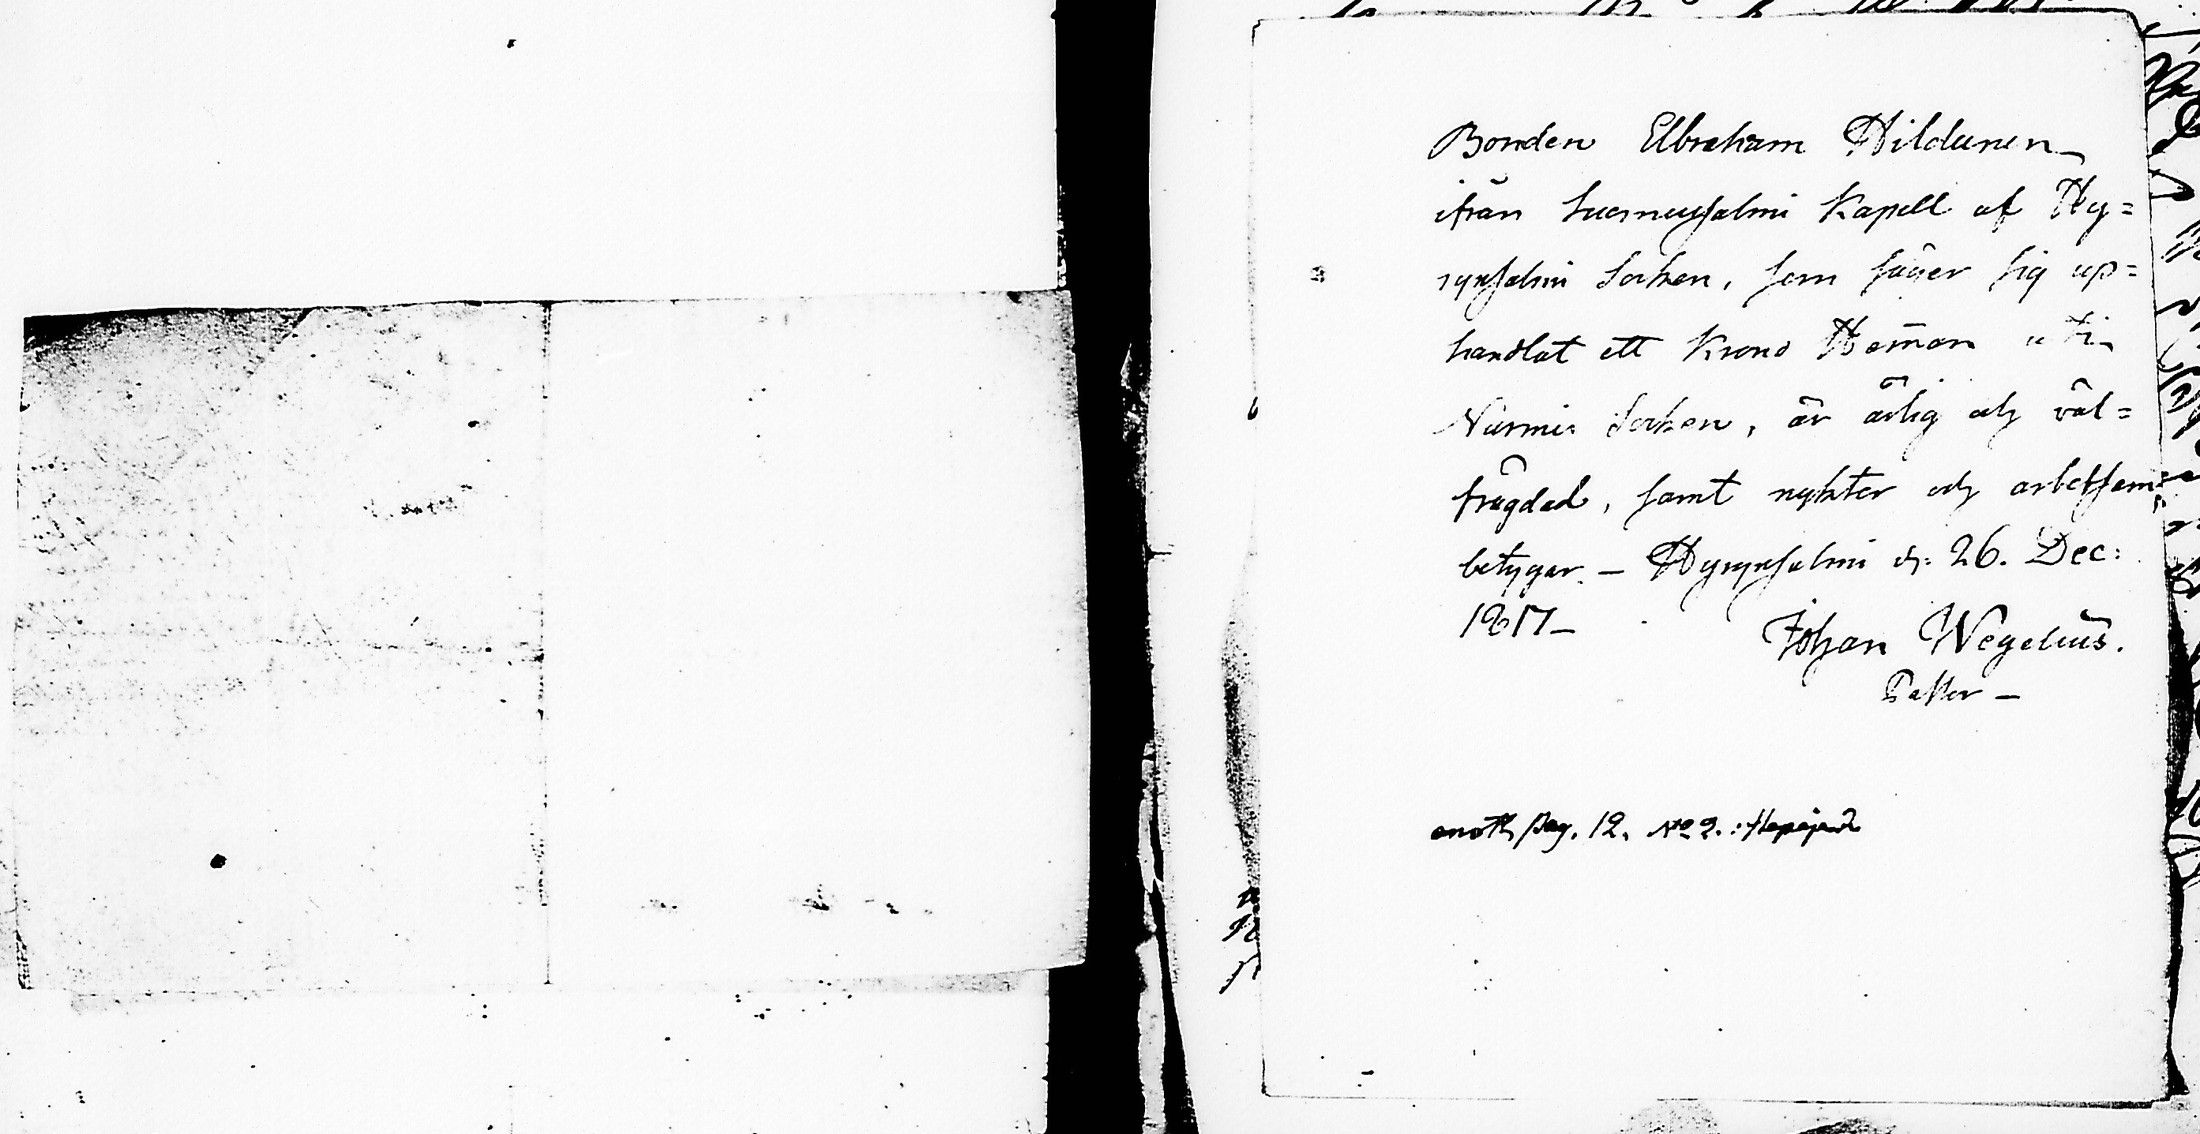 Bonden Abraham Hildunen
ifrån Suomusalmi Kapell af Hy=
rynsalmi Socken, som säger sig up=
handlat ett Krono Hem̄an uti
Nurmis Socken, är ärlig och väl=
frägdad, samt nykter och arbetsam;
betygar. — Hyrynsalmi d: 26. Dec:
1817 —
Johan Wegelius.
Pastor —
anoth pag. 12. No 2.